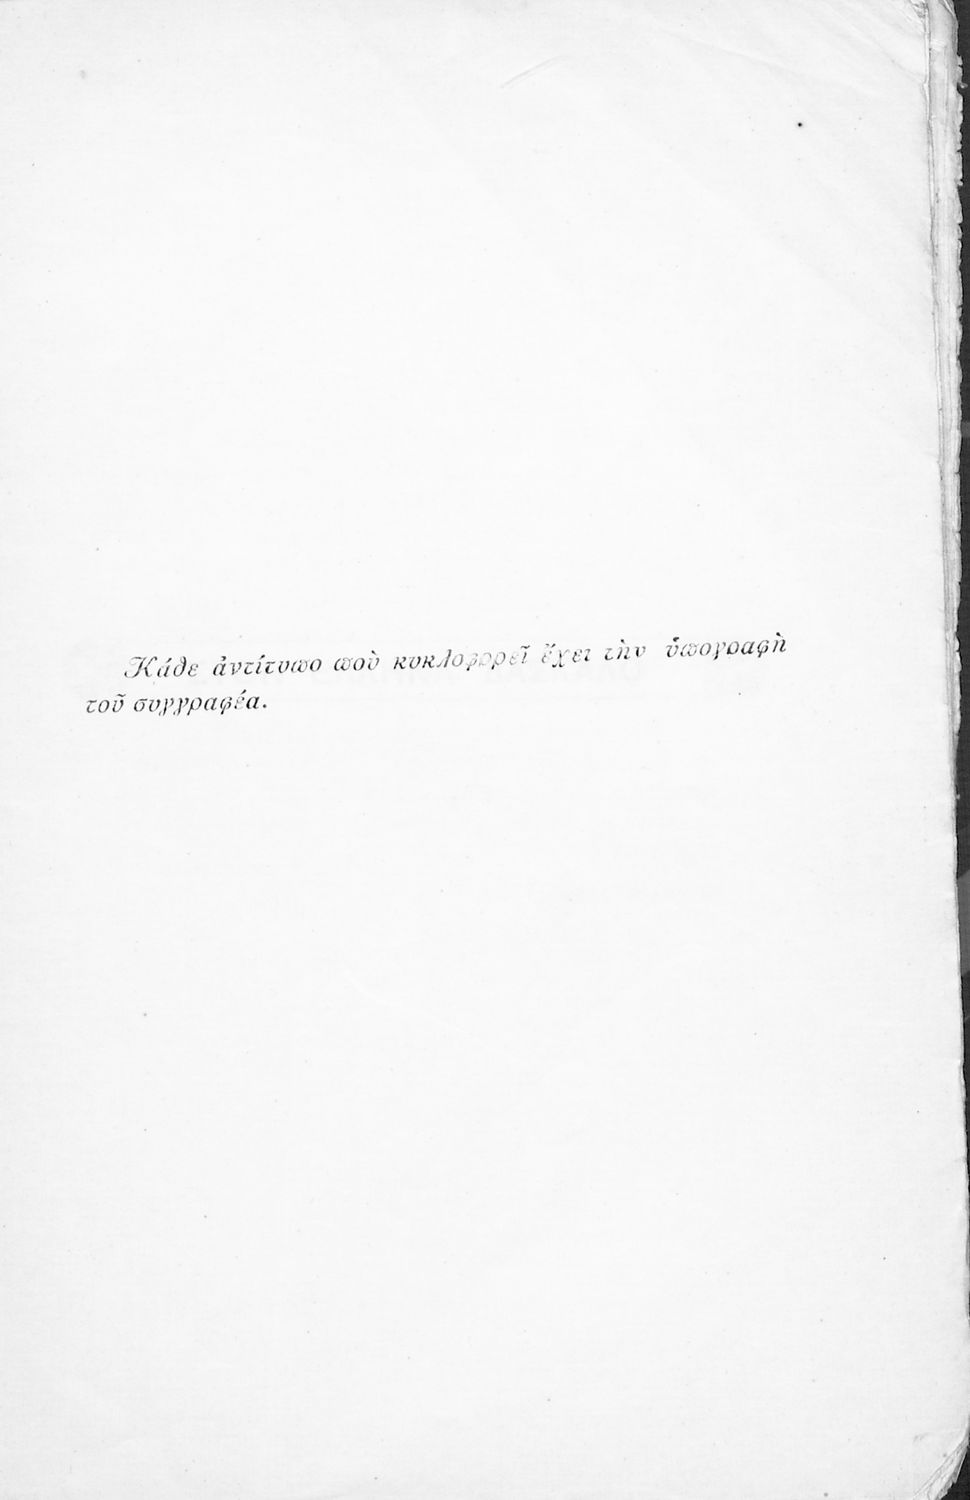 Κάθε ἀντίτυπο ποὺ κυκλοφορεῖ ἔχει τὴν ὑπογραφὴ
τοῦ συγγραφέα.